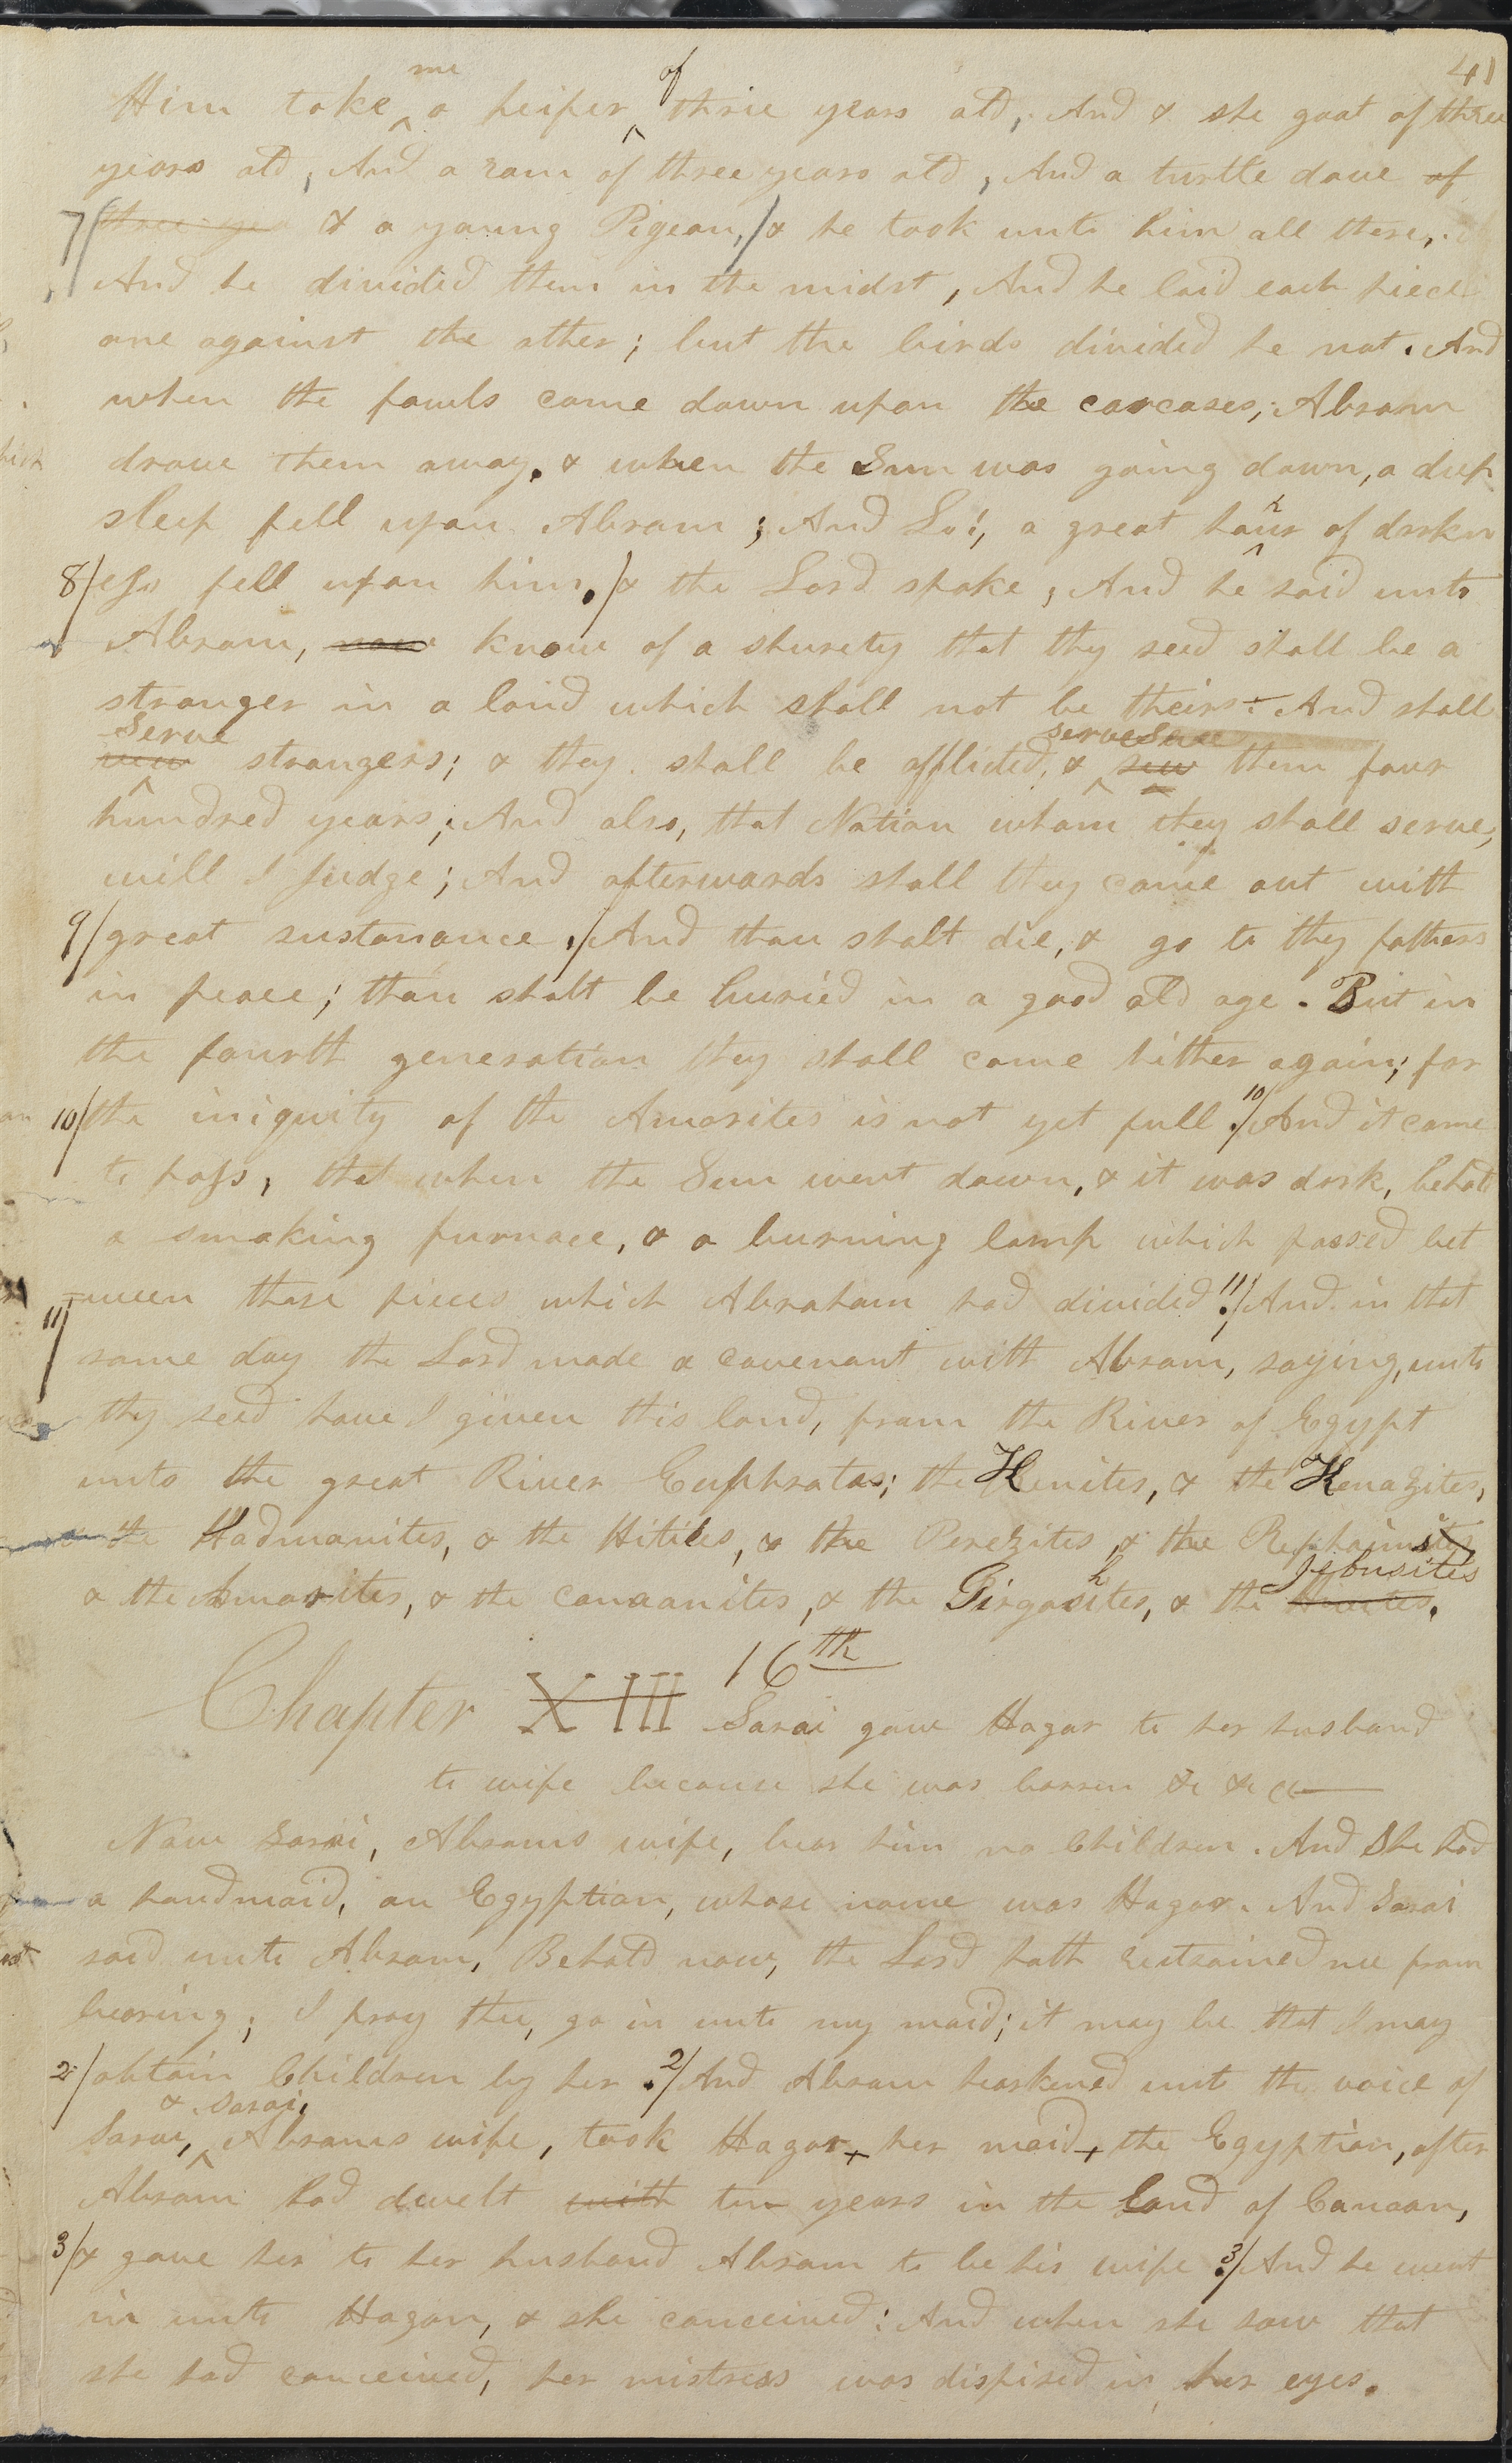 41
Him take me a heifer of three years old, And a she goat of three
years old, And a ram of three years old, And a turtle dove of
7/ three yea & a young Pigeon,/& he took unto him all these,
And he divided them in the midst, And he laid each piece
one against the other; but the birds divided he not. And
when the fowls came down upon the carcases; Abram
drove them away. & when the Sun was going down, a deep
sleep fell upon Abram; And Lo!, a great horror of darkn
8/ ess fell upon him./& the Lord spake, And he said unto
Abram, now know of a shurety that thy seed shall be a
stranger in a land which shall not be theirs:- And shall
Serve strangers; & they shall be afflicted, & serve them four
hundred years; And also, that Nation whom they shall serve,
will I Judge; And afterwards shall they come out with
9/ great sustanance./And thou shalt die, & go to thy fathers
in peace; thou shalt be buried in a good old age. But in
the fourth generation they shall come hither again; for
10/ the iniquity of the Amorites is not yet full. 10/And it came
to pass, that when the Sun went down, & it was dark, behold
a smoking furnace, & a burning lamp which passed bet
11/ =ween those pieces which Abraham had divided. 11/And in that
same day the Lord made a covenant with Abram, saying, unto
thy seed have I given this land, from the River of Egypt
unto the great River Euphratas; the Kenites, & the Kenazites,
& the Kadmanites, & the Hitites, & the Perezites, & the Rephaims
& the Amorites, & the canaanites, & the Girgashites, & the Jebusites Hivites.
Chapter XIII 16th Sarai gave Hagar to her husband
to wife because she was barren &c &c &c
Now Sarai, Abrams wife, bear him no Children. And She had
a handmaid, an Egyptian, whose name was Hagar. And Sarai
said unto Abram, Behold now, the Lord hath restrained me from
bearing; I pray thee, go in unto my maid; it may be that I may
2/ obtain Children by her. 2/And Abram hearkened unto the voice of
Sarai, & Sarai, Abrams wife, took Hagar her maid the Egyptian, after
Abram had dwelt with ten years in the land of Canaan,
3/ & gave her to her husband Abram to be his wife. 3/And he went
in unto Hagar, & she conceived: And when she saw that
she had conceived, her mistress was dispised in her eyes.